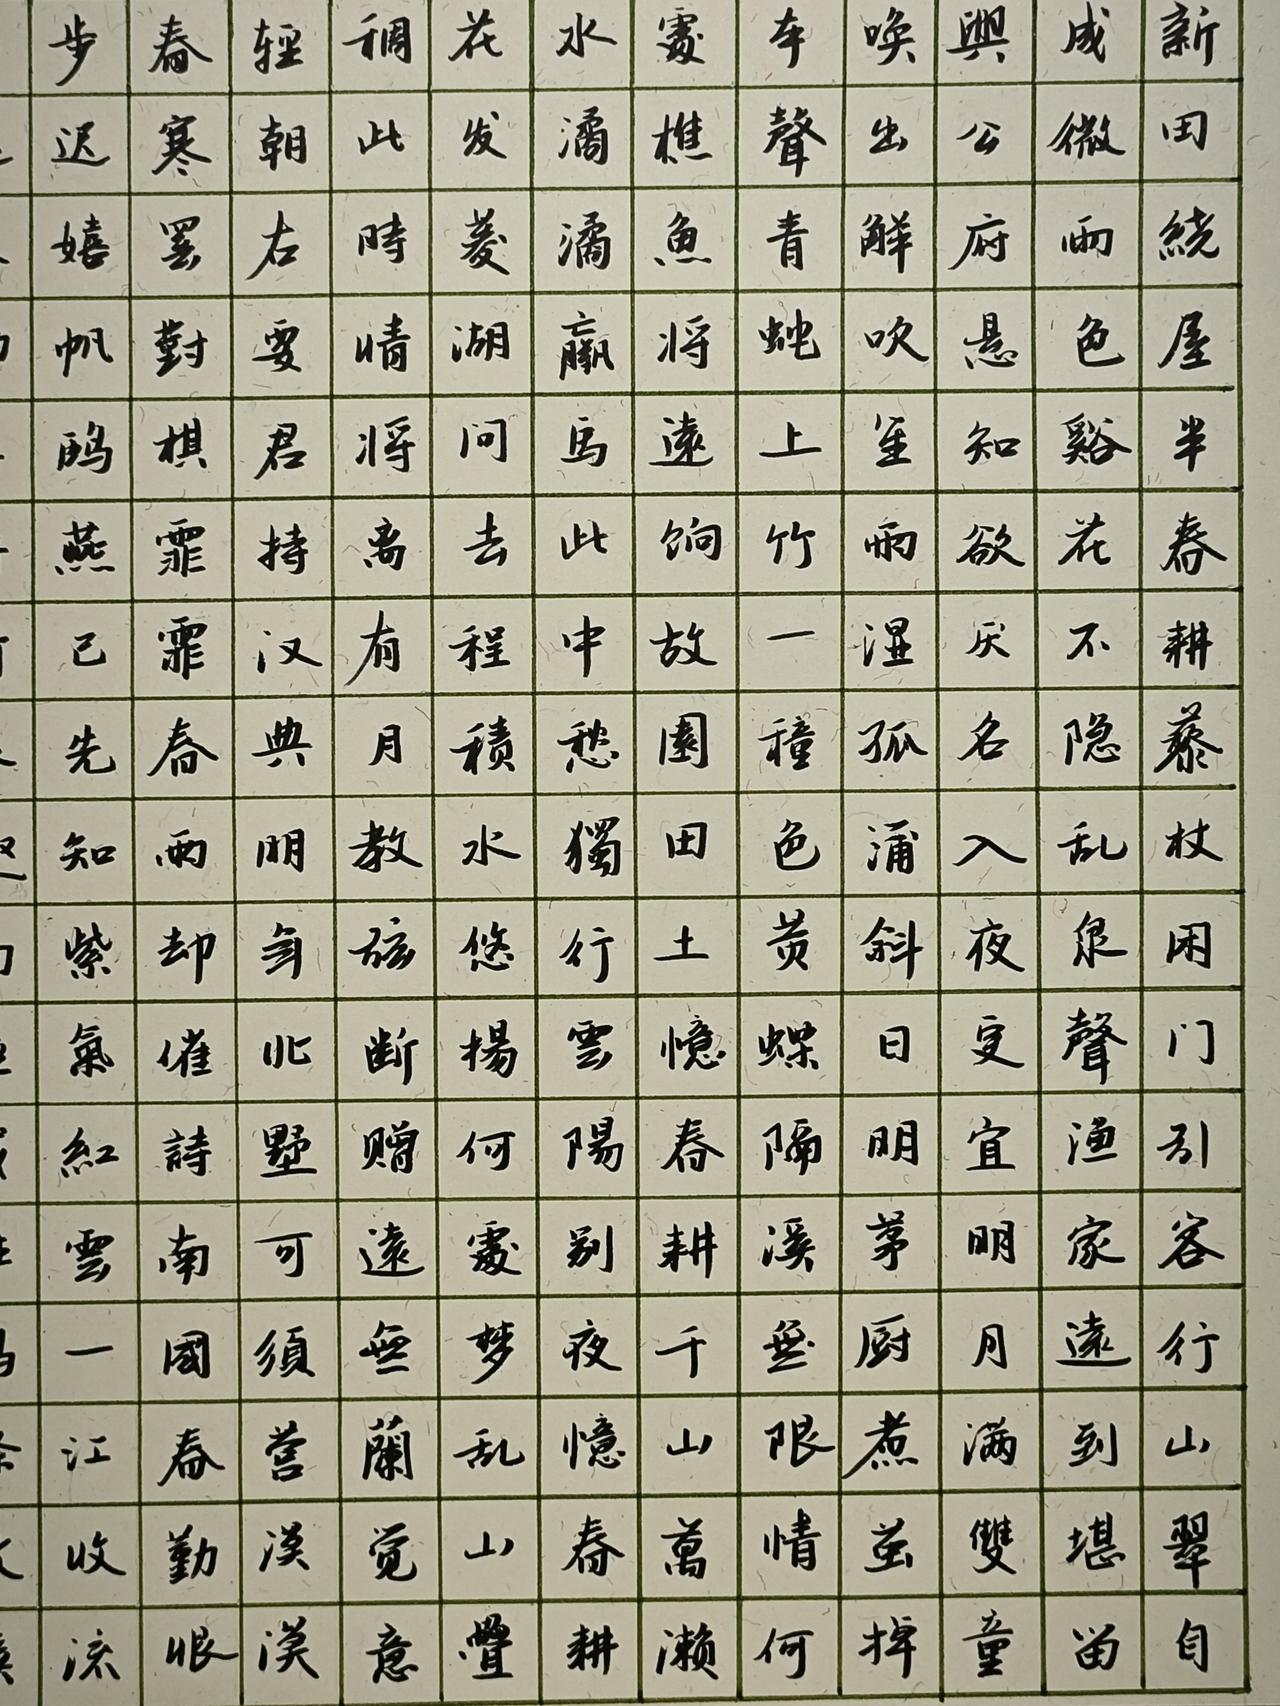 新田繞屋半春耕藜杖闲门引客行山翠自
成微雨色谿花不隐乱泉聲渔家遠到堪留
興公府悬知欲厌名入夜更宜明月满雙童
唤出解吹笙雨湿孤蒲斜日明茅厨煮茧掉
车聲青蛇上竹一種色黄蝶隔溪無限情何
處樵魚将遠饷故園田土憶春耕千山萬濑
水潏潏羸马此中愁獨行雲陽别夜憶春耕
花发菱湖问去程積水悠揚何處梦乱山疊
稠此時情将离有月教弦断赠遠無蘭觉意
輕朝右要君持汉典明年北墅可須营漠漠
春寒罢對棋霏霏春雨却催詩南國春勤恨
步迟嬉帆鸥燕已先知紫氣紅雲一江收流